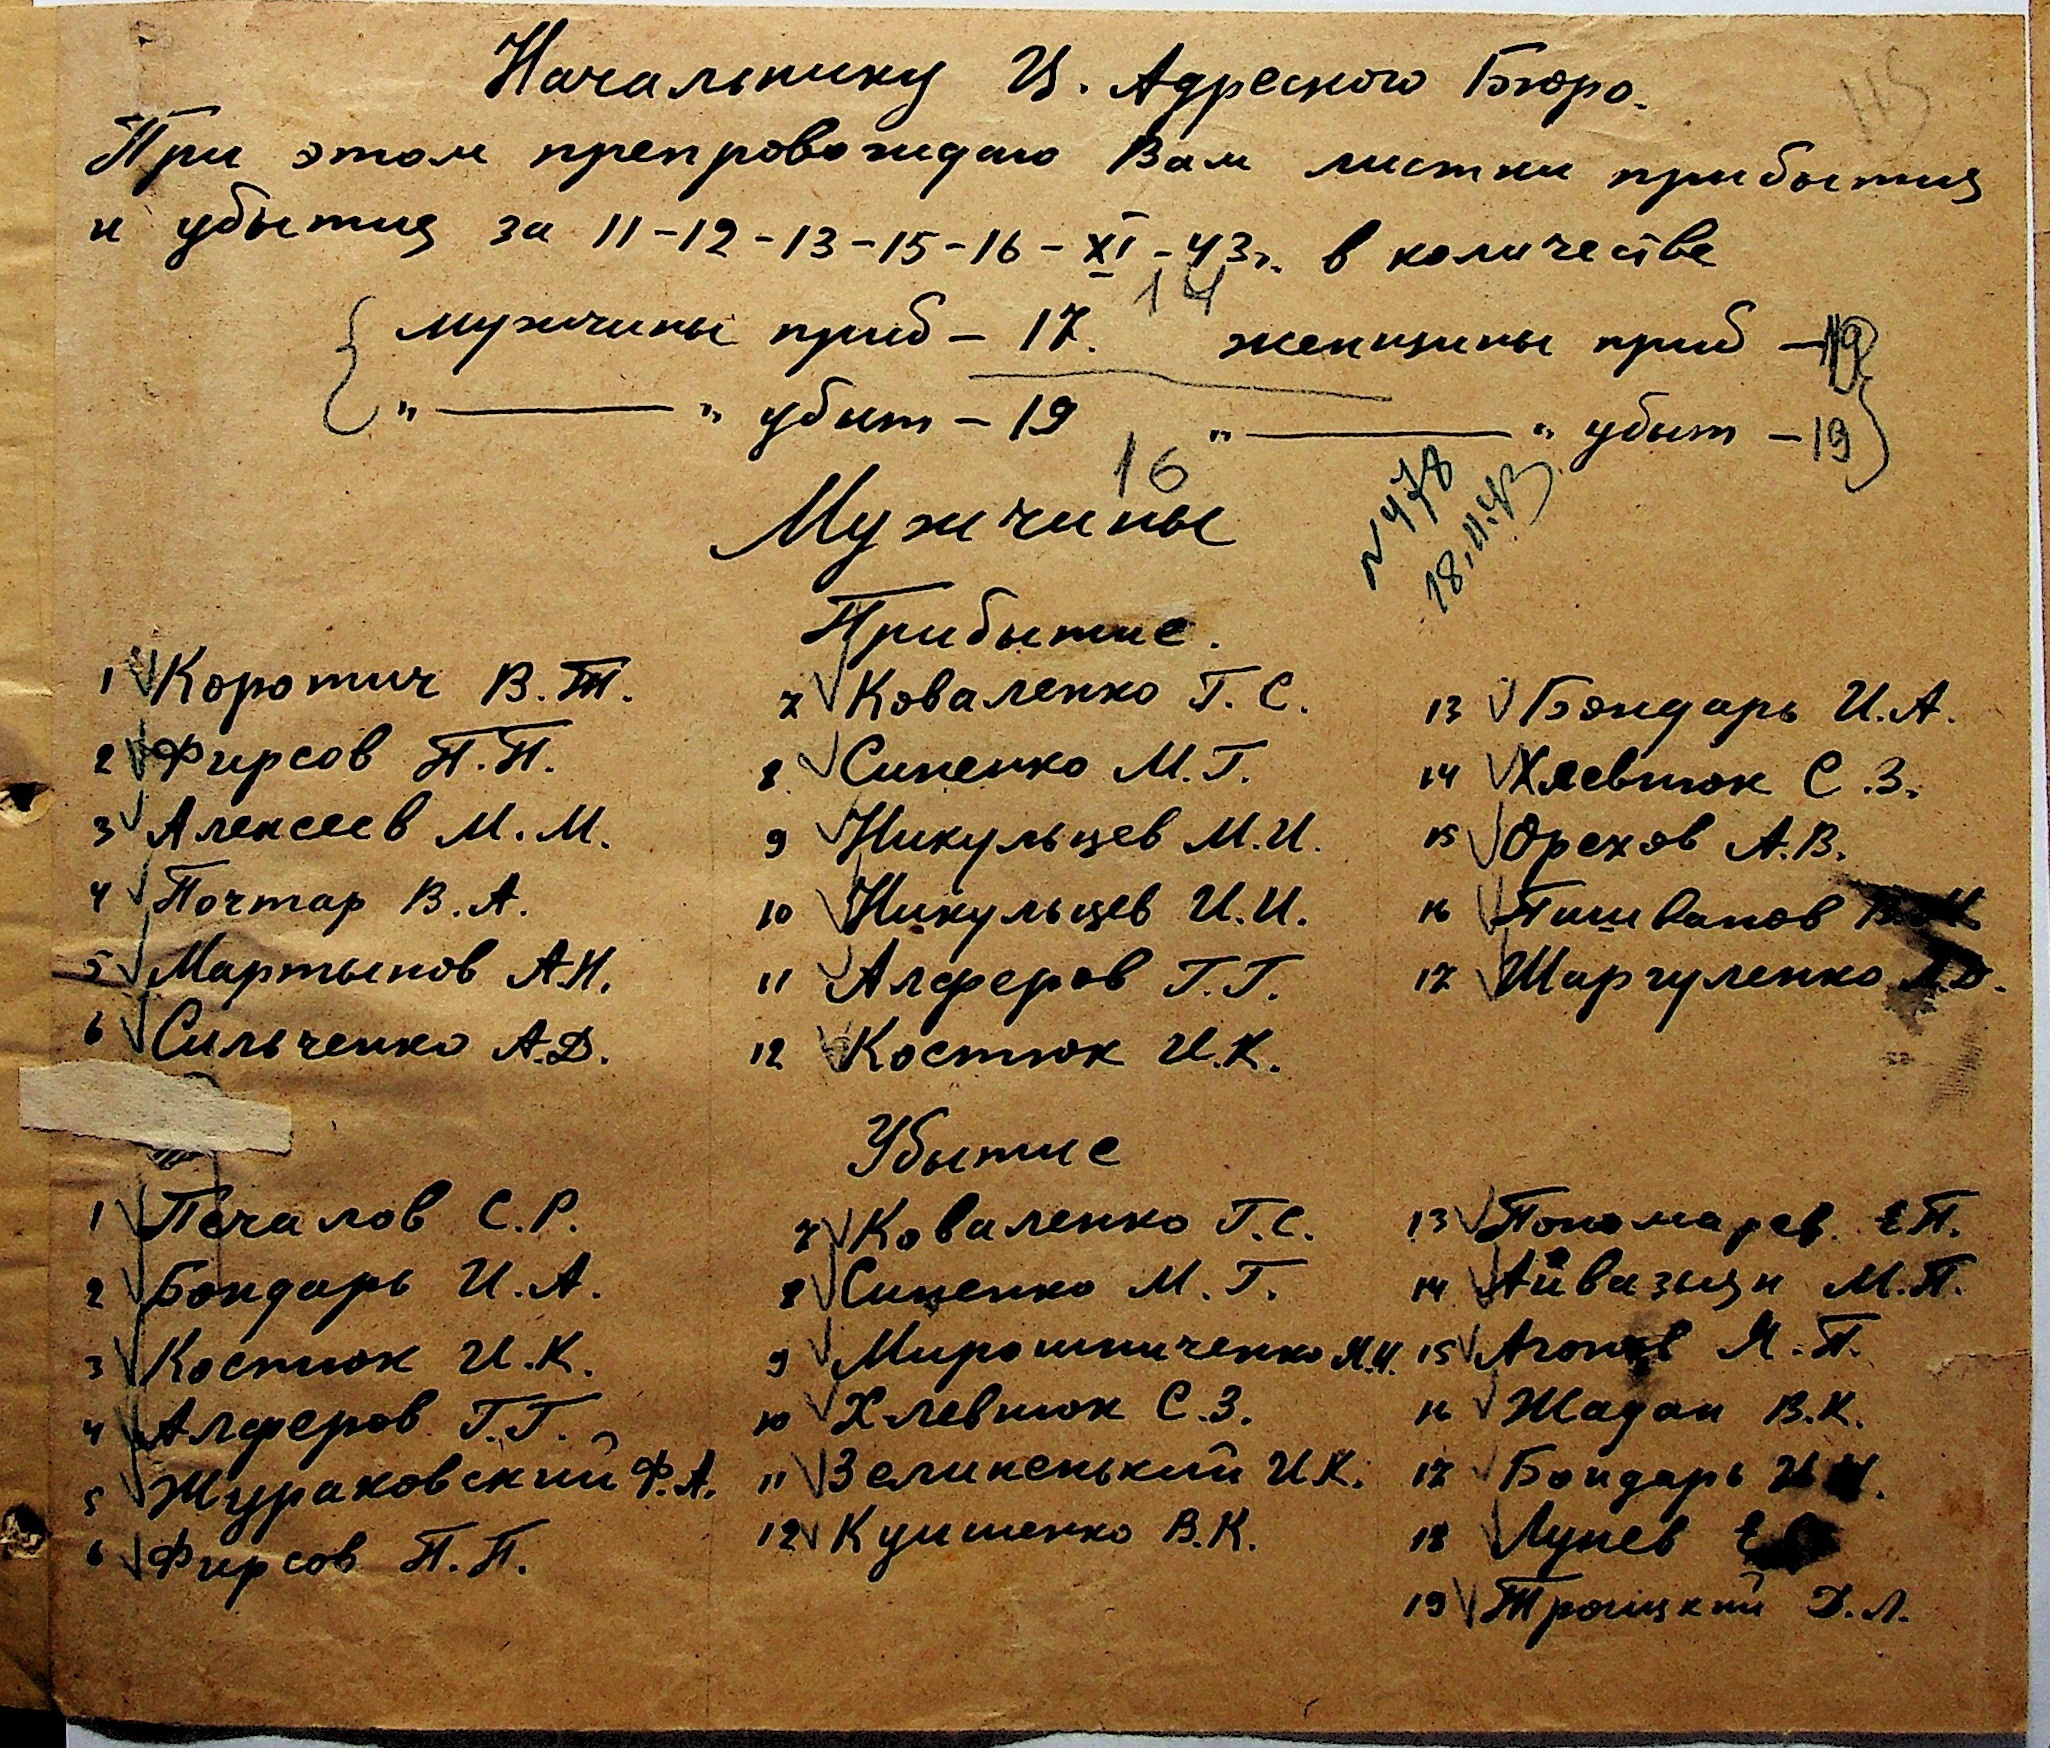 115
Начальнику Ц. Адресного Бюро.
При этом препровождаю Вам листки прибытия
и убытия за 11-12-13-15-16-XI-43г. в количестве
14
мужчины приб – 17. женщины приб –
"———" убыт – 19 "———" убыт – 19
16
Мужчины
N478
18.11.43
Прибытие.
1 Коротич В.Т.
2 Фирсов П.П.
3 Алексеев М.М.
4 Почтар В.А.
5 Мартынов А.Н.
6 Сильченко А.Д.
7 Коваленко Г.С.
8 Синенко М.Г.
9 Никульцев М.И.
10 Никульцев И.И.
11 Алферов Г.Г.
12 Костюк И.К.
13 Бондарь И.А.
14 Хлевнюк С.З.
15 Орехов А.В.
16 Пишванов
17 Шаргуленко
Убытие
1 Печалов С.Р.
2 Бондарь И.А.
3 Костюк И.К.
4 Алферов Г.Г.
5 Жураковский Ф.А.
6 Фирсов П.П.
7 Коваленко Г.С.
8 Синенко М.Г.
9 Мирошниченко
10 Хлевнюк С.З.
11 Зелиненький И.К.
12 Кушненко В.К.
13 Пономарев Е.П.
14 Айвазян М.П.
15 Я.П.
16 Жадан В.К.
17 Бондарь И
18 Лунев Е
19 Троицкий Д.Л.